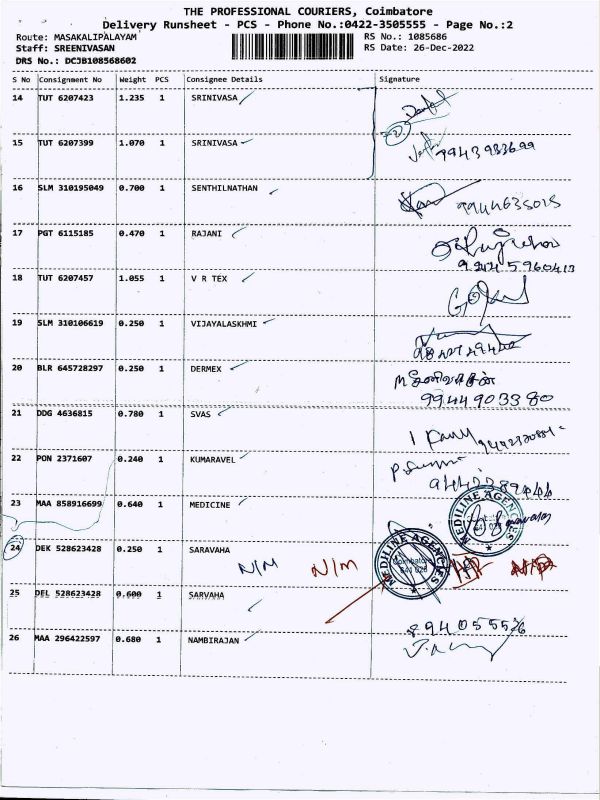 THE PROFESSIONAL COURIERS, Coimbatore
Delivery Runsheet - PCS - Phone No.:0422-3505555 - Page No.:2
Route: MASAKALIPALAYAM RS No.: 1085686
Staff: SREENIVASAN RS Date: 26-Dec-2022
DRS No.: DCJB108568602
S No Consignment No Weight PCS Consignee Details Signature
14 TUT 6207423 1.235 1 SRINIVASA
15 TUT 6207399 1.070 1 SRINIVASA 9943983699
16 SLM 310195049 0.700 1 SENTHILNATHAN 9944635015
17 PGT 6115185 0.470 1 RAJANI
18 TUT 6207457 1.055 1 V R TEX
19 SLM 310106619 0.250 1 VIJAYALASKHMI
20 BLR 645728297 0.250 1 DERMEX
9944903380
21 DDG 4636815 0.780 1 SVAS
22 PON 2371607 0.240 1 KUMARAVEL
23 MAA 858916699 0.640 1 MEDICINE MEDILINE AGENCIES
24 DEK 528623428 0.250 1 SARAVAHA N/M N/M MEDILINE AGENCIES Coimbatore 641 028
25 DEL 528623428 0.600 1 SARVAHA
26 MAA 296422597 0.680 1 NAMBIRAJAN